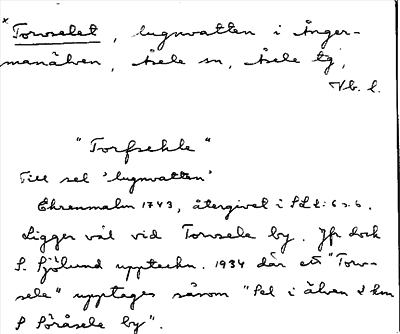 * Torvselet, lugnvatten i Ånger-
manälven, Åsele sn, Åsele tg,
Vb. l.
"Torfsehle"
Till sel 'lugnvatten'
Ehrenmalm 1743, återgivet i SLL: s. 
Ligger väl vid Torvsele by. Jfr dock
S. Sjölund uppteckn. 1934 där ett "Torv-
sele" upptages såsom "Sel i älven 2 km
S Söråsele by".